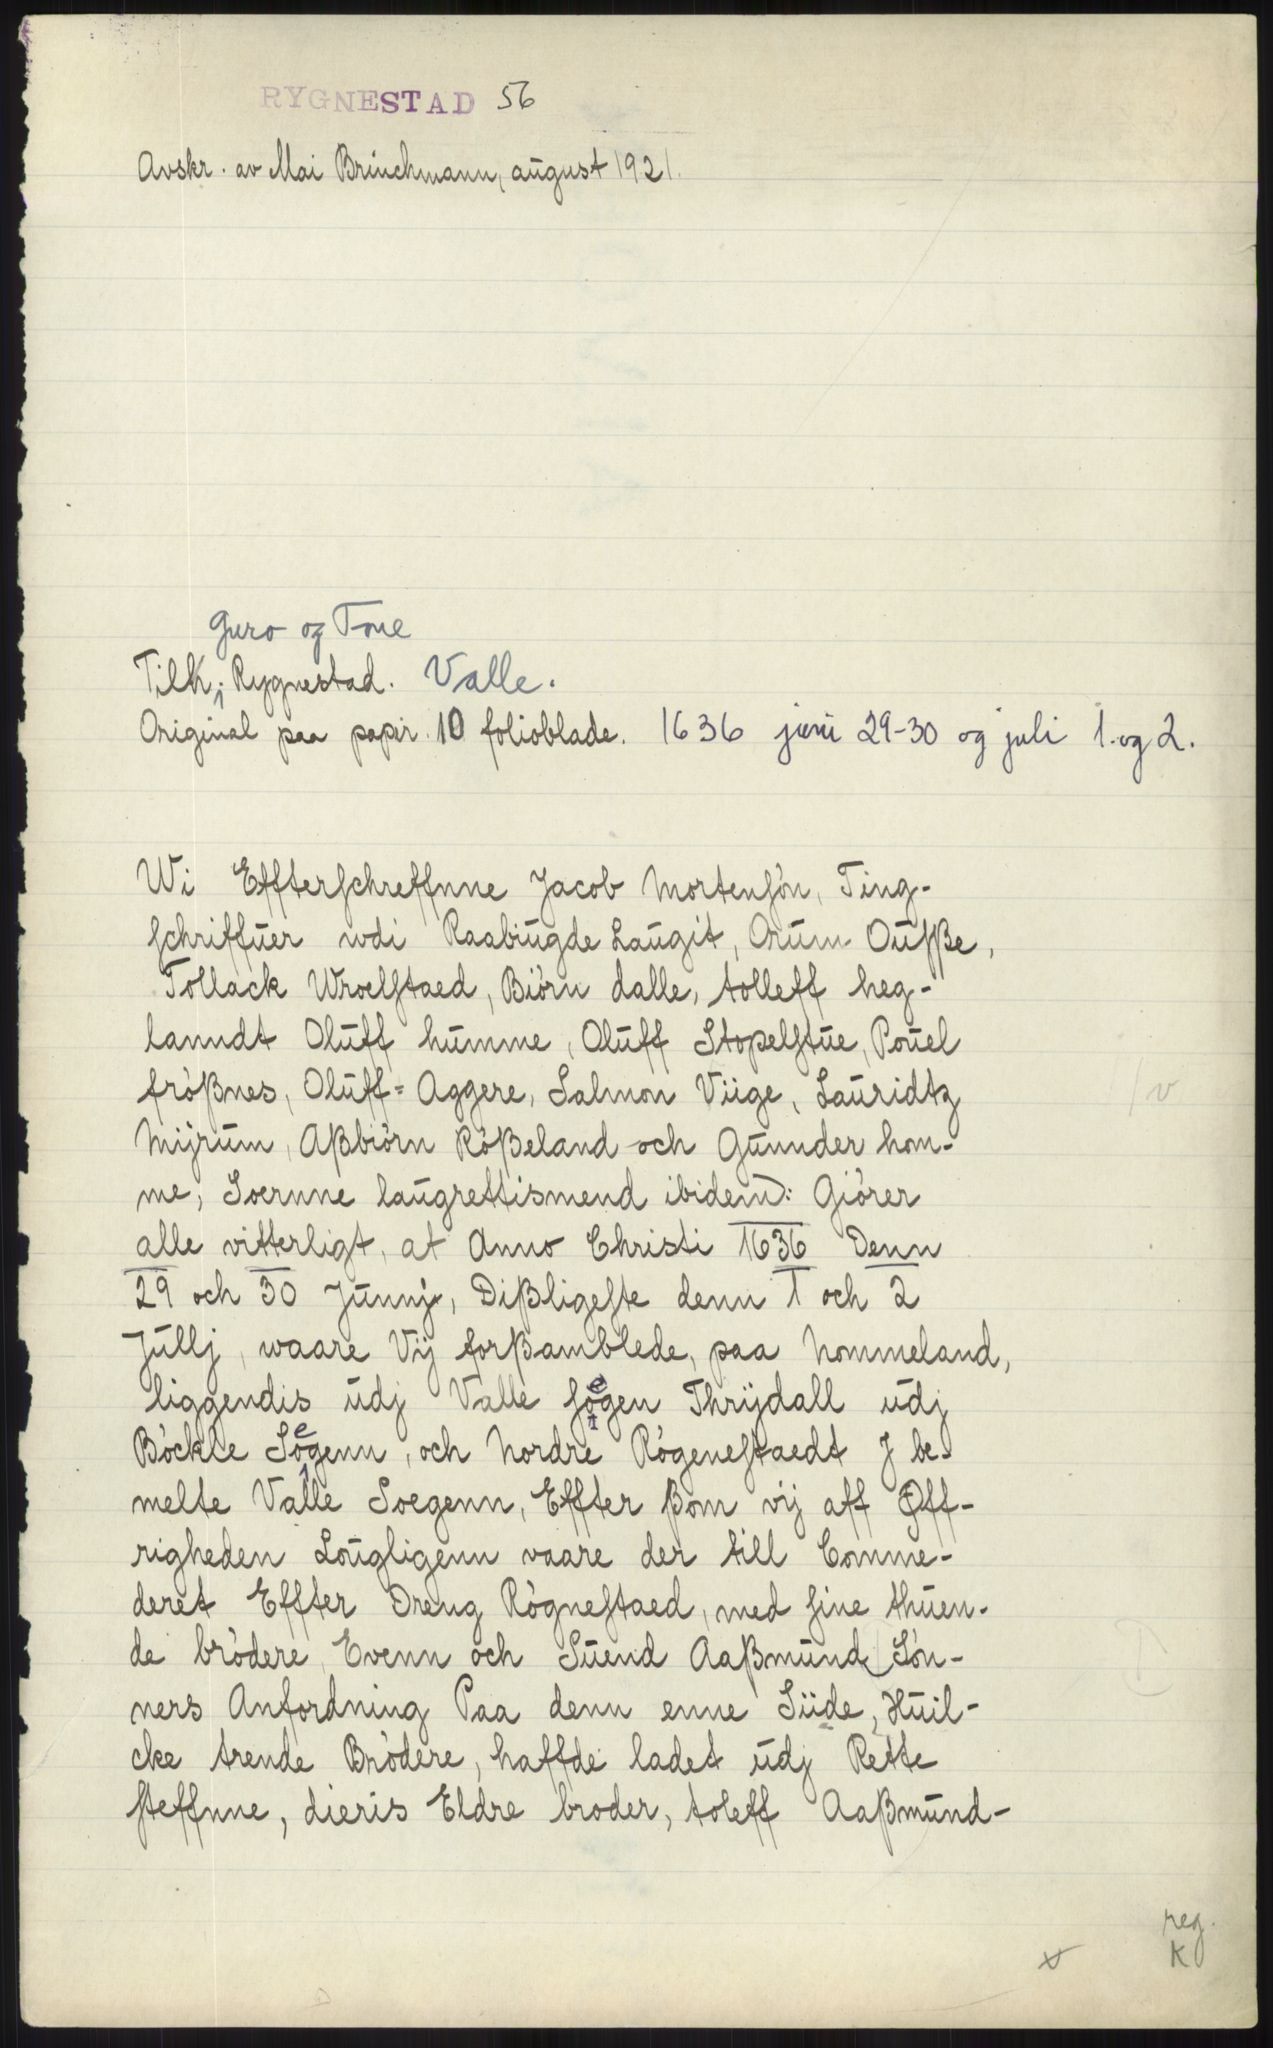 RYGNESTAD 56
Avskr. av Mai Brinchmann, august 1921.
Guro og Tone
Tilh. Rygnestad. Valle.
Original paa papir. 10 folioblade. 1636 juni 29-30 og juli 1. og 2.
Wi Effterschreffnne Jacob Mortensön, Ting-
schriffuer wdi Raabiugde Laugit, Orum Ousße,
Tollack Wroelstaed, Biörn dalle, tolleff heg-
lanndt Oluff humme, Oluff Stopelstue, Pouel
frößnes, Oluff= Aggere, Salmon Viige, Lauridtz
Mijrum, Aßbiörn Rößeland och Gunnder hom-
me, Soernne laugrettismend ibidem: Giörer
alle vitterligt, at Anno Christi 1636 Denn
29 och 30 Junnj, Dißligeste denn 1 och 2
Jullj, waare Vij forßamblede, paa Nommeland,
liggendis udj Valle soegen Thrijdall udj
Böckle Soegenn, och Nordre Rögenestaedt J be-
melte Valle Soegenn, Effter ßom vij aff Øff-
righeden Lougligenn vaare der till Comme-
deret Effter Dreng Rögnestaed, med sine thuen-
de brödere, Evenn och Suend Aaßmund Sön-
ners Anfordning Paa denn enne Siide, Huil-
cke trende Brödere, haffde ladet udj Rette
steffnne, dieris Eldre broder, toleff Aaßmund-
reg.
K
v